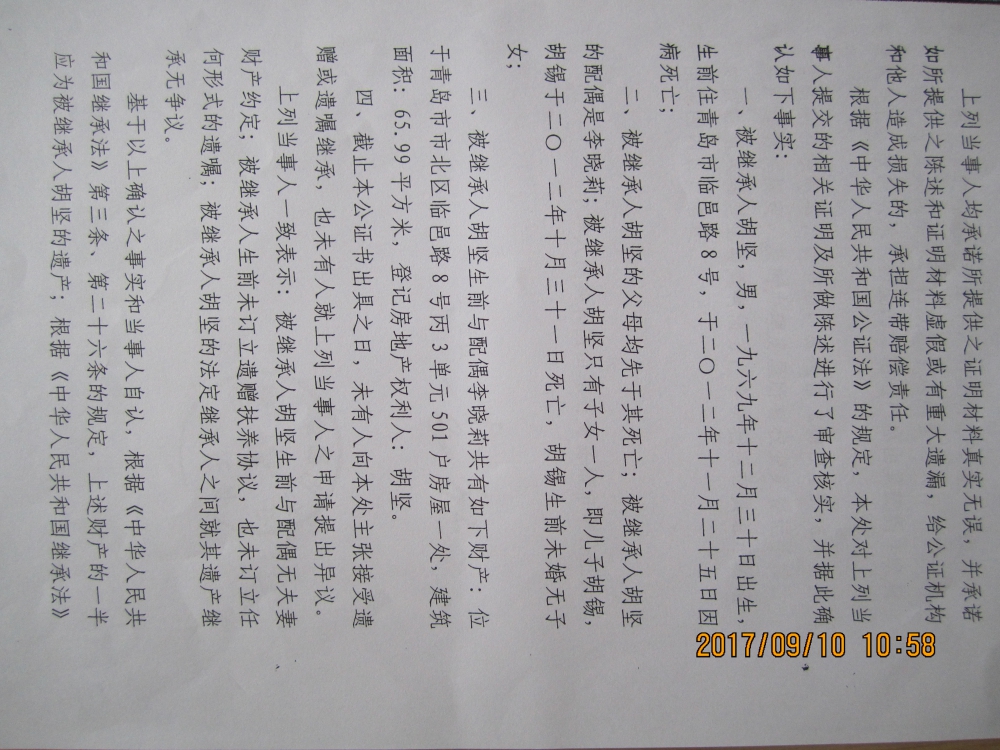 上列当事人均承诺所提供之证明材料真实无误，并承诺
如所提供之陈述和证明材料虚假或有重大遗漏，给公证机构
和他人造成损失的，承担连带赔偿责任。
根据《中华人民共和国公证法》的规定，本处对上列当
事人提交的相关证明及所做陈述进行了审查核实，并据此确
认如下事实：
一、被继承人胡坚，男，一九六九年十二月三十日出生，
生前住青岛市临邑路8号，于二〇一二年十一月二十五日因
病死亡；
二、被继承人胡坚的父母均先于其死亡；被继承人胡坚
的配偶是李晓莉；被继承人胡坚只有子女一人，即儿子胡锡，
胡锡于二〇一二年十月三十一日死亡，胡锡生前未婚无子
女；
三、被继承人胡坚生前与配偶李晓莉共有如下财产：位
于青岛市市北区临邑路8号丙3单元501户房屋一处，建筑
面积：65.99平方米，登记房地产权利人：胡坚。
四、截止本公证书出具之日，未有人向本处主张接受遗
赠或遗嘱继承，也未有人就上列当事人之申请提出异议。
上列当事人一致表示：被继承人胡坚生前与配偶无夫妻
财产约定；被继承人生前未订立遗赠扶养协议，也未订立任
何形式的遗嘱；被继承人胡坚的法定继承人之间就其遗产继
承无争议。
基于以上确认之事实和当事人自认，根据《中华人民共
和国继承法》第三条、第二十六条的规定，上述财产的一半
应为被继承人胡坚的遗产；根据《中华人民共和国继承法》
2017/09/10 10:58